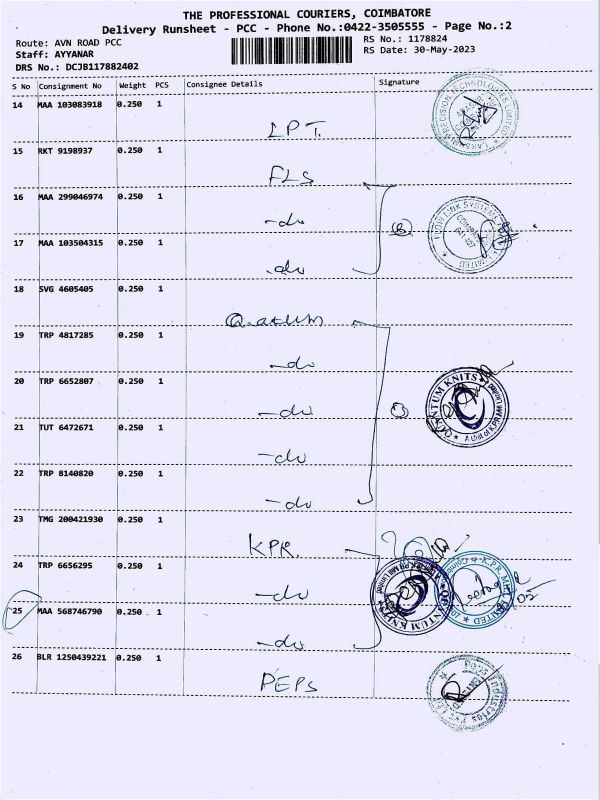 THE PROFESSIONAL COURIERS, COIMBATORE
Delivery Runsheet - PCC - Phone No.:0422-3505555 - Page No.:2
Route: AVN ROAD PCC RS No.: 1178824
Staff: AYYANAR RS Date: 30-May-2023
DRS No.: DCJB117882402
S No Consignment No Weight PCS Consignee Details Signature
14 MAA 103083918 0.250 1
LPT.
15 RKT 9198937 0.250 1
FLS
16 MAA 299046974 0.250 1
-do
17 MAA 103504315 0.250 1
-do
18 SVG 4605405 0.250 1
19 TRP 4817285 0.250 1
-do
20 TRP 6652807 0.250 1
-do
QUANTUM KNITS
A Unit of KPR Mill Limited
21 TUT 6472671 0.250 1
-do
22 TRP 8140820 0.250 1
-do
23 TMG 200421930 0.250 1
KPR.
24 TRP 6656295 0.250 1
-do
25 MAA 568746790 0.250 1
-do
26 BLR 1250439221 0.250 1
PEPS